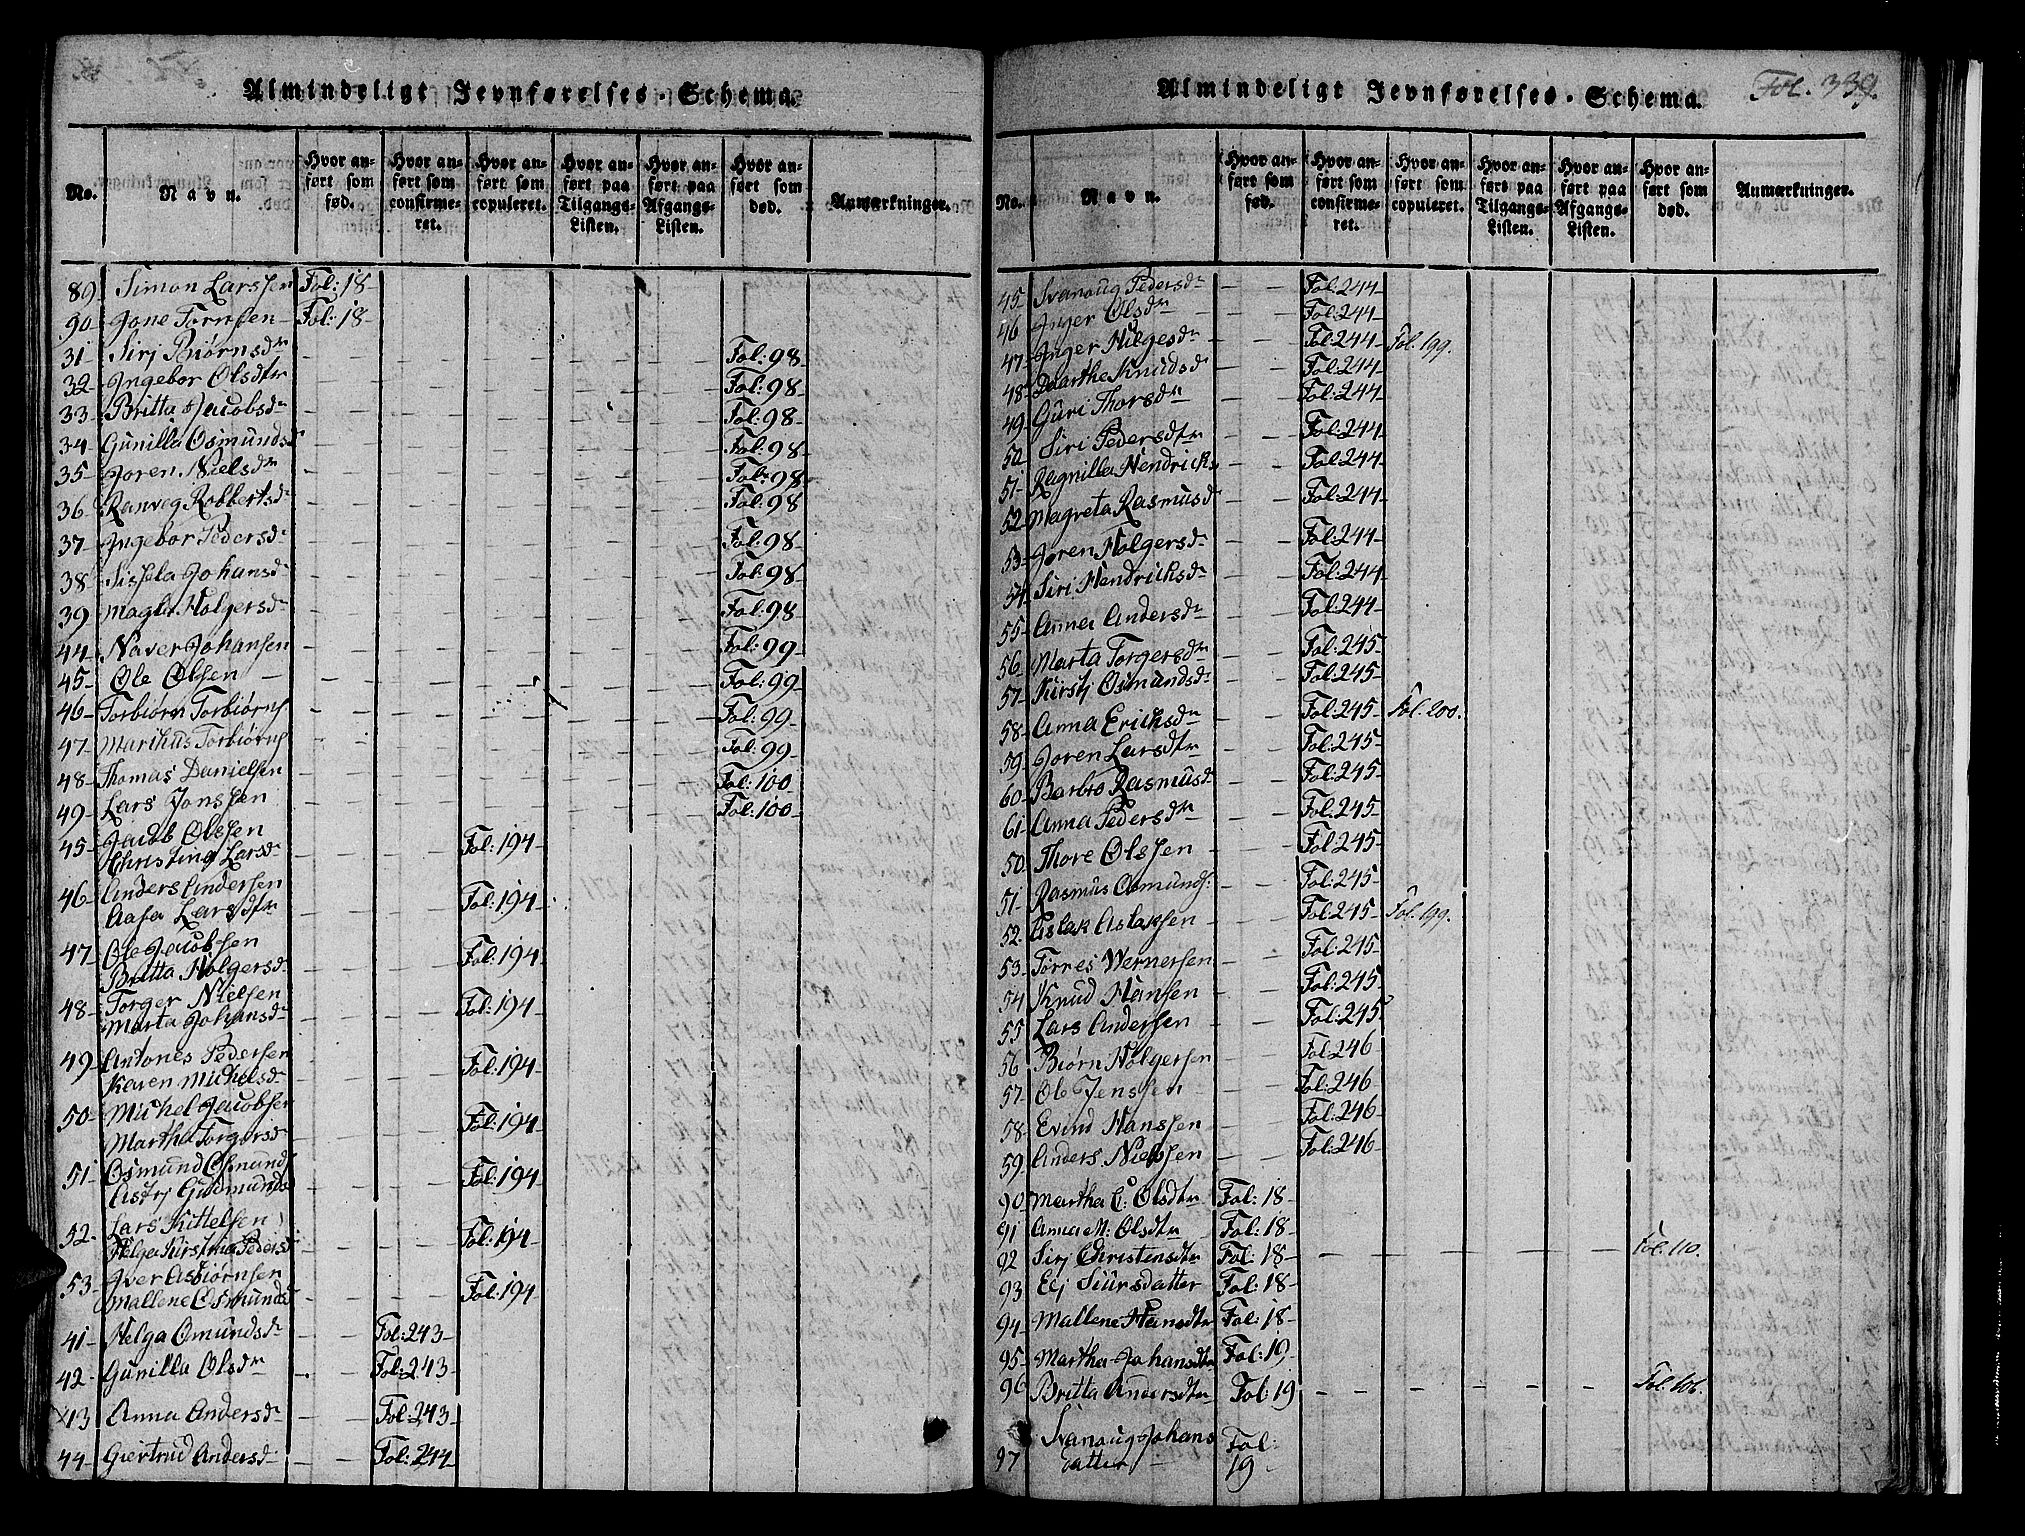 Almindeligt Jevnførelses-Schema.
No. Navn. Hvor anført som fød. Hvor anført som confirmeret. Hvor anført som copuleret. Hvor anført paa Tilgangs-Listen. Hvor anført paa Afgangs-Listen. Hvor anført som død. Anmærkninger.
89 Simon Larssen Fol: 18
90 Jone Tørnsen Fol: 18
31 Sirj Biørnsdr Fol: 98
32 Ingebor Olsdtr Fol: 98
33 Britta Jacobsdr Fol: 98
34 Gunilla Osmundsd Fol: 98
35 Joren Nielsdr Fol: 98
36 Ranveg Robbertsdr Fol: 98
37 Ingebor Pedersdr Fol: 98
38 Sissela Johansdr Fol: 98
39 Magla Holgersdr Fol: 98
44 Naver Johansen Fol: 99
45 Ole Olsen Fol: 99
46 Torbiørn Torbiørns Fol: 99
47 Marikus Torbiørns Fol: 99
48 Thomas Danielsen Fol: 100
49 Lars Jonssen Fol: 100
45 Jacob Olssen
Christina Larsdr Fol: 194
46 Anders Andersen
Aasa Larsdtr Fol: 194
47 Ole Jacobsen
Britta Holgersdr Fol: 194
48 Torger Nielsen
Marta Johansdr Fol: 194
49 Antones Pedersen
Karen Michelsdr Fol: 194
50 Michel Jacobsen
Martha Torgersdr Fol: 194
51 Osmund Osmunds
Astrj Gudmundsd Fol: 194
52 Lars Kittelsen
Helga Kirstina Pedersd Fol: 194
53 Iver Asbiørnsen
Mallene Osmundsd Fol: 194
41 Helga Omundsdr Fol: 243
42 Gunilla Olsdr Fol: 243
43 Anna Andersdr Fol: 243
44 Giertrud Andersd Fol: 244
Almindeligt Jevnførelses-Schema. Fol. 339.
No. Navn. Hvor anført som fød. Hvor anført som confirmeret. Hvor anført som copuleret. Hvor anført paa Tilgangs-Listen. Hvor anført paa Afgangs-Listen. Hvor anført som død. Anmærkninger.
45 Svanoug Pedersdr Fol: 244
46 Inger Olsdr Fol: 244
47 Inger Helgesdr Fol: 244 Fol. 199.
48 Marthe Knudsd Fol: 244
49 Guri Thorsdr Fol: 244
50 Siri Pedersdtr Fol: 244
51 Ragnilla Hendricks Fol: 244
52 Magreta Rasmusd Fol: 244
53 Joren Holgersdr Fol: 244
54 Siri Hendricksdr Fol: 244
55 Anna Andersdr Fol: 244
56 Marta Torgersdr Fol: 245
57 Kirstj Osmundsdr Fol: 245
58 Anna Ericksdr Fol: 245 Fol. 200.
59 Joren Larsdtr Fol: 245
60 Barbro Rasmusd Fol: 245
61 Anna Pedersdr Fol: 245
50 Thore Olssen Fol: 245
51 Rasmus Osmunds: Fol: 245
52 Aslak Aslaksen Fol: 245 Fol. 199.
53 Tørres Wernersen Fol: 245
54 Knud Hansen Fol: 245
55 Lars Andersen Fol: 245
56 Biørn Holgersen Fol: 246
57 Ole Jenssen Fol: 246
58 Evind Hanssen Fol: 246
59 Anders Nielssen Fol: 246
90 Martha C: Olsdtr Fol: 18
91 Anna M: Olsdtr Fol: 18
92 Sirj Christensdtr Fol: 18 Fol. 110.
93 Elj Siursdatter Fol: 18
94 Mallene Hansdtr Fol: 18
95 Martha Johansdtr Fol: 19
96 Britta Andersdtr Fol: 19 Fol. 106.
97 Svanoug Johans
datter Fol: 19